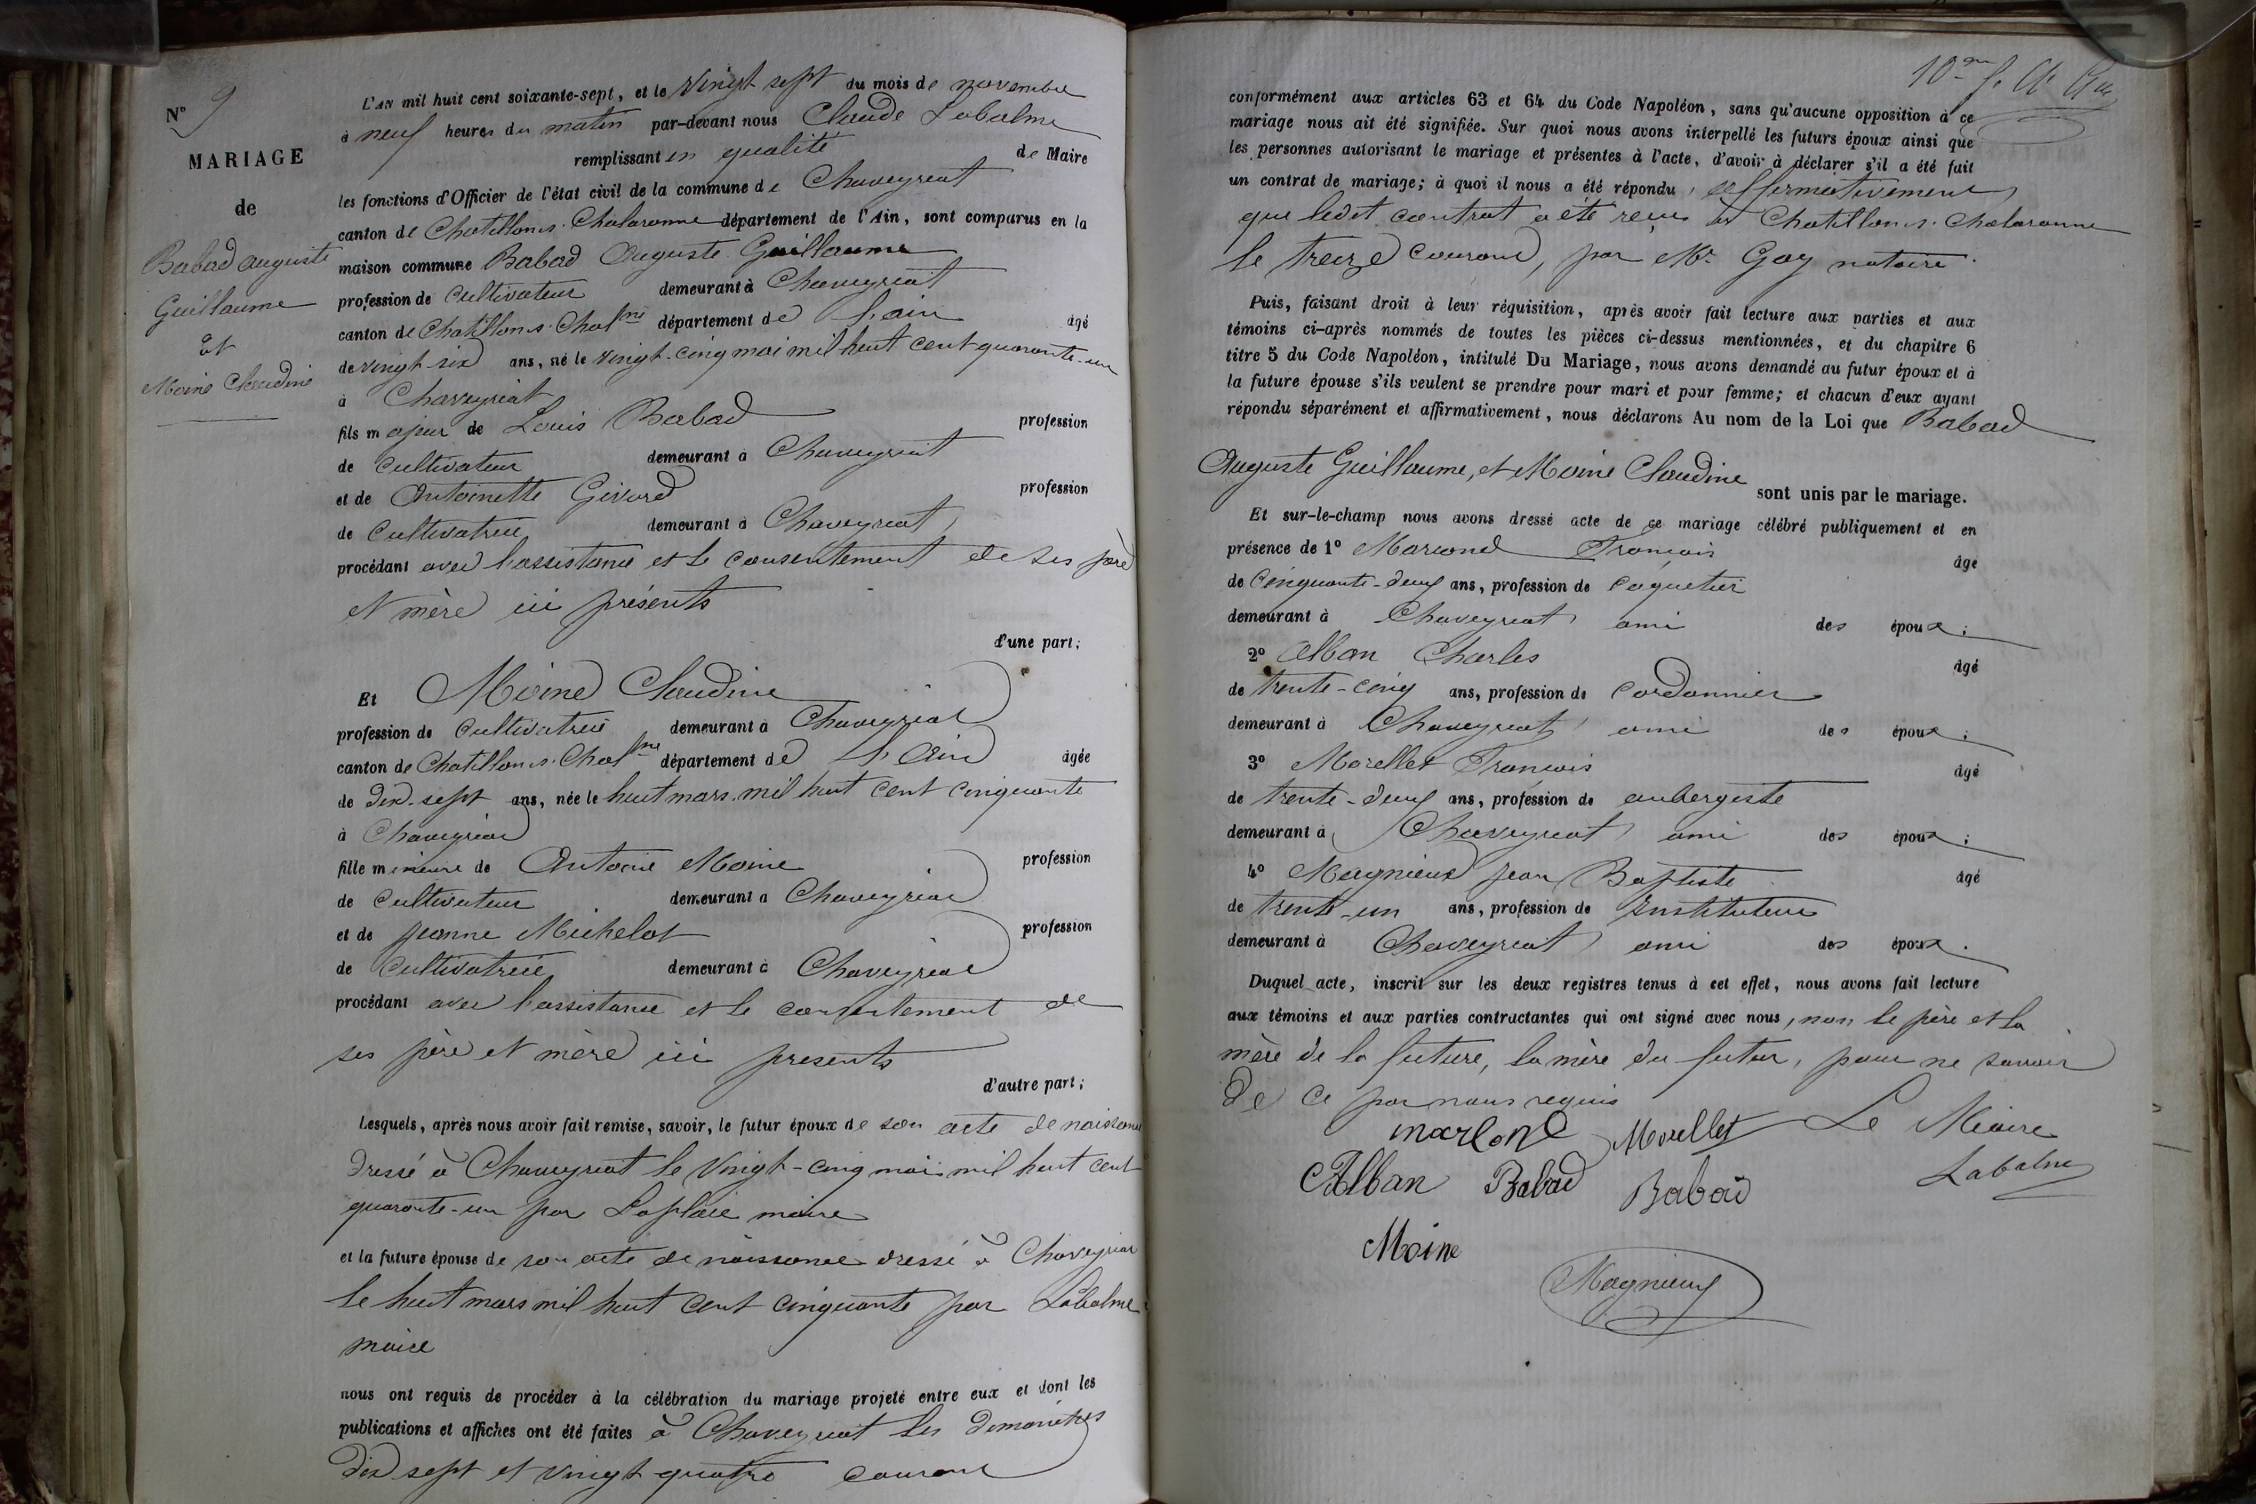 N° 9
MARIAGE
de
Babad Auguste
Guillaume
et
Moine Claudine
L'AN mil huit cent soixante-sept, et le vingt sept du mois de novembre
à neuf heures du matin par-devant nous Claude Labalme
remplissant en qualité de Maire
les fonctions d'Officier de l'état civil de la commune de Chaveyriat
canton de Chatillon s. Chalaronne département de l'Ain, sont comparus en la
maison commune Babad Auguste Guillaume
profession de Cultivateur demeurant à Chaveyriat
canton de Chatillon s. Chalne département de l'ain âgé
de vingt six ans, né le vingt-cinq mai mil huit cent quarante-un
à Chaveyriat
fils majeur de Louis Babad profession
de Cultivateur demeurant à Chaveyriat
et de Antoinette Givord profession
de Cultivatrice demeurant à Chaveyriat
procédant avec l'assistance et le consentement de ses père
et mère ici présents
d'une part;
Et Moine Claudine
profession de Cultivatrice demeurant à Chaveyriat
canton de Chatillon s. Chalne département de l'Ain âgée
de dix-sept ans, née le huit mars mil huit cent cinquante
à Chaveyriat
fille mineure de Antoine Moine profession
de Cultivateur demeurant à Chaveyriat
et de Jeanne Michelot profession
de Cultivatrice demeurant à Chaveyriat
procédant avec l'assistance et le consentement de
ses père et mère ici presents
d'autre part;
Lesquels, après nous avoir fait remise, savoir, le futur époux de son acte de naissance
dressé à Chaveyriat le vingt-cinq mai mil huit cent
quarante-un par Laplace maire
et la future épouse de son acte de naissance dressé à Chaveyriat
le huit mars mil huit cent cinquante par Labalme
maire
nous ont requis de procéder à la célébration du mariage projeté entre eux et dont les
publications et affiches ont été faites à Chaveyriat les dimanches
dix sept et vingt-quatre courant
conformément aux articles 63 et 64 du Code Napoléon, sans qu'aucune opposition à ce
mariage nous ait été signifiée. Sur quoi nous avons interpellé les futurs époux ainsi que
les personnes autorisant le mariage et présentes à l'acte, d'avoir à déclarer s'il a été fait
un contrat de mariage; à quoi il nous a été répondu affirmativement,
que ledit contrat a été reçu à Chatillon s. Chalaronne
le treize courant, par Mr. Goy notaire.
Puis, faisant droit à leur réquisition, après avoir fait lecture aux parties et aux
témoins ci-après nommés de toutes les pièces ci-dessus mentionnées, et du chapitre 6
titre 5 du Code Napoléon, intitulé Du Mariage, nous avons demandé au futur époux et à
la future épouse s'ils veulent se prendre pour mari et pour femme; et chacun d'eux ayant
répondu séparément et affirmativement, nous déclarons Au nom de la Loi que Babad
Auguste Guillaume, et Moine Claudine
sont unis par le mariage.
Et sur-le-champ nous avons dressé acte de ce mariage célébré publiquement et en
présence de 1° Marlond François âgé
de cinquante-deux ans, profession de coquetier
demeurant à Chaveyriat ami des époux;
2° Alban Charles âgé
de trente-cinq ans, profession de cordonnier
demeurant à Chaveyriat ami des époux;
3° Morellet François âgé
de trente-deux ans, profession de aubergiste
demeurant à Chaveyriat ami des époux;
4° Magnieux Jean Baptiste âgé
de trente-un ans, profession de Instituteur
demeurant à Chaveyriat ami des époux.
Duquel acte, inscrit sur les deux registres tenus à cet effet, nous avons fait lecture
aux témoins et aux parties contractantes qui ont signé avec nous, non le père et la
mère de la future, la mère du futur, pour ne savoir
de ce par nous requis
marlond Morellet Le Maire
CAlban Babad Babad Labalme
Moine
Magnieux